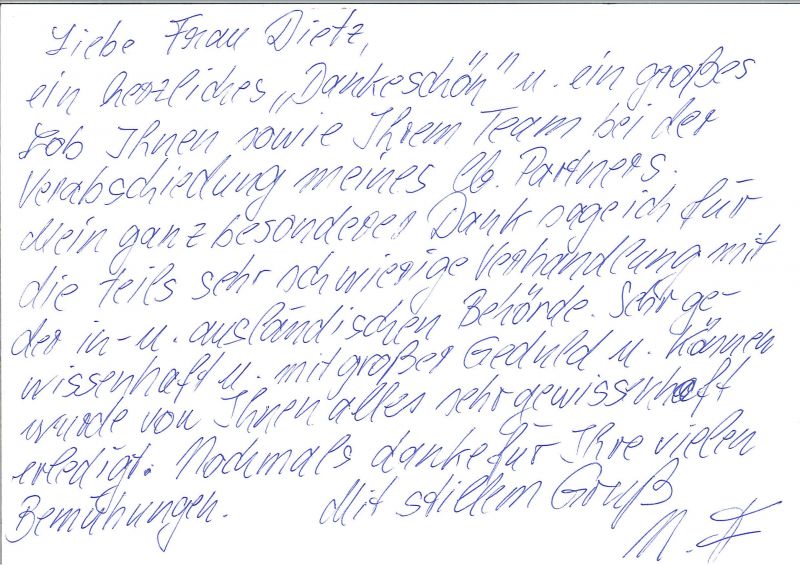 Liebe Frau Dietz,
ein herzliches „Dankeschön" u. ein großes
Lob Ihnen sowie Ihrem Team bei der
Verabschiedung meines lb. Partners.
Mein ganz besonderer Dank sage ich für
die teils sehr schwierige Verhandlung mit
der in- u. ausländischen Behörde. Sehr ge-
wissenhaft u. mit großer Geduld u. Können
wurde von Ihnen alles sehr gewissenhaft
erledigt. Nochmals danke für Ihre vielen
Bemühungen. Mit stillem Gruß